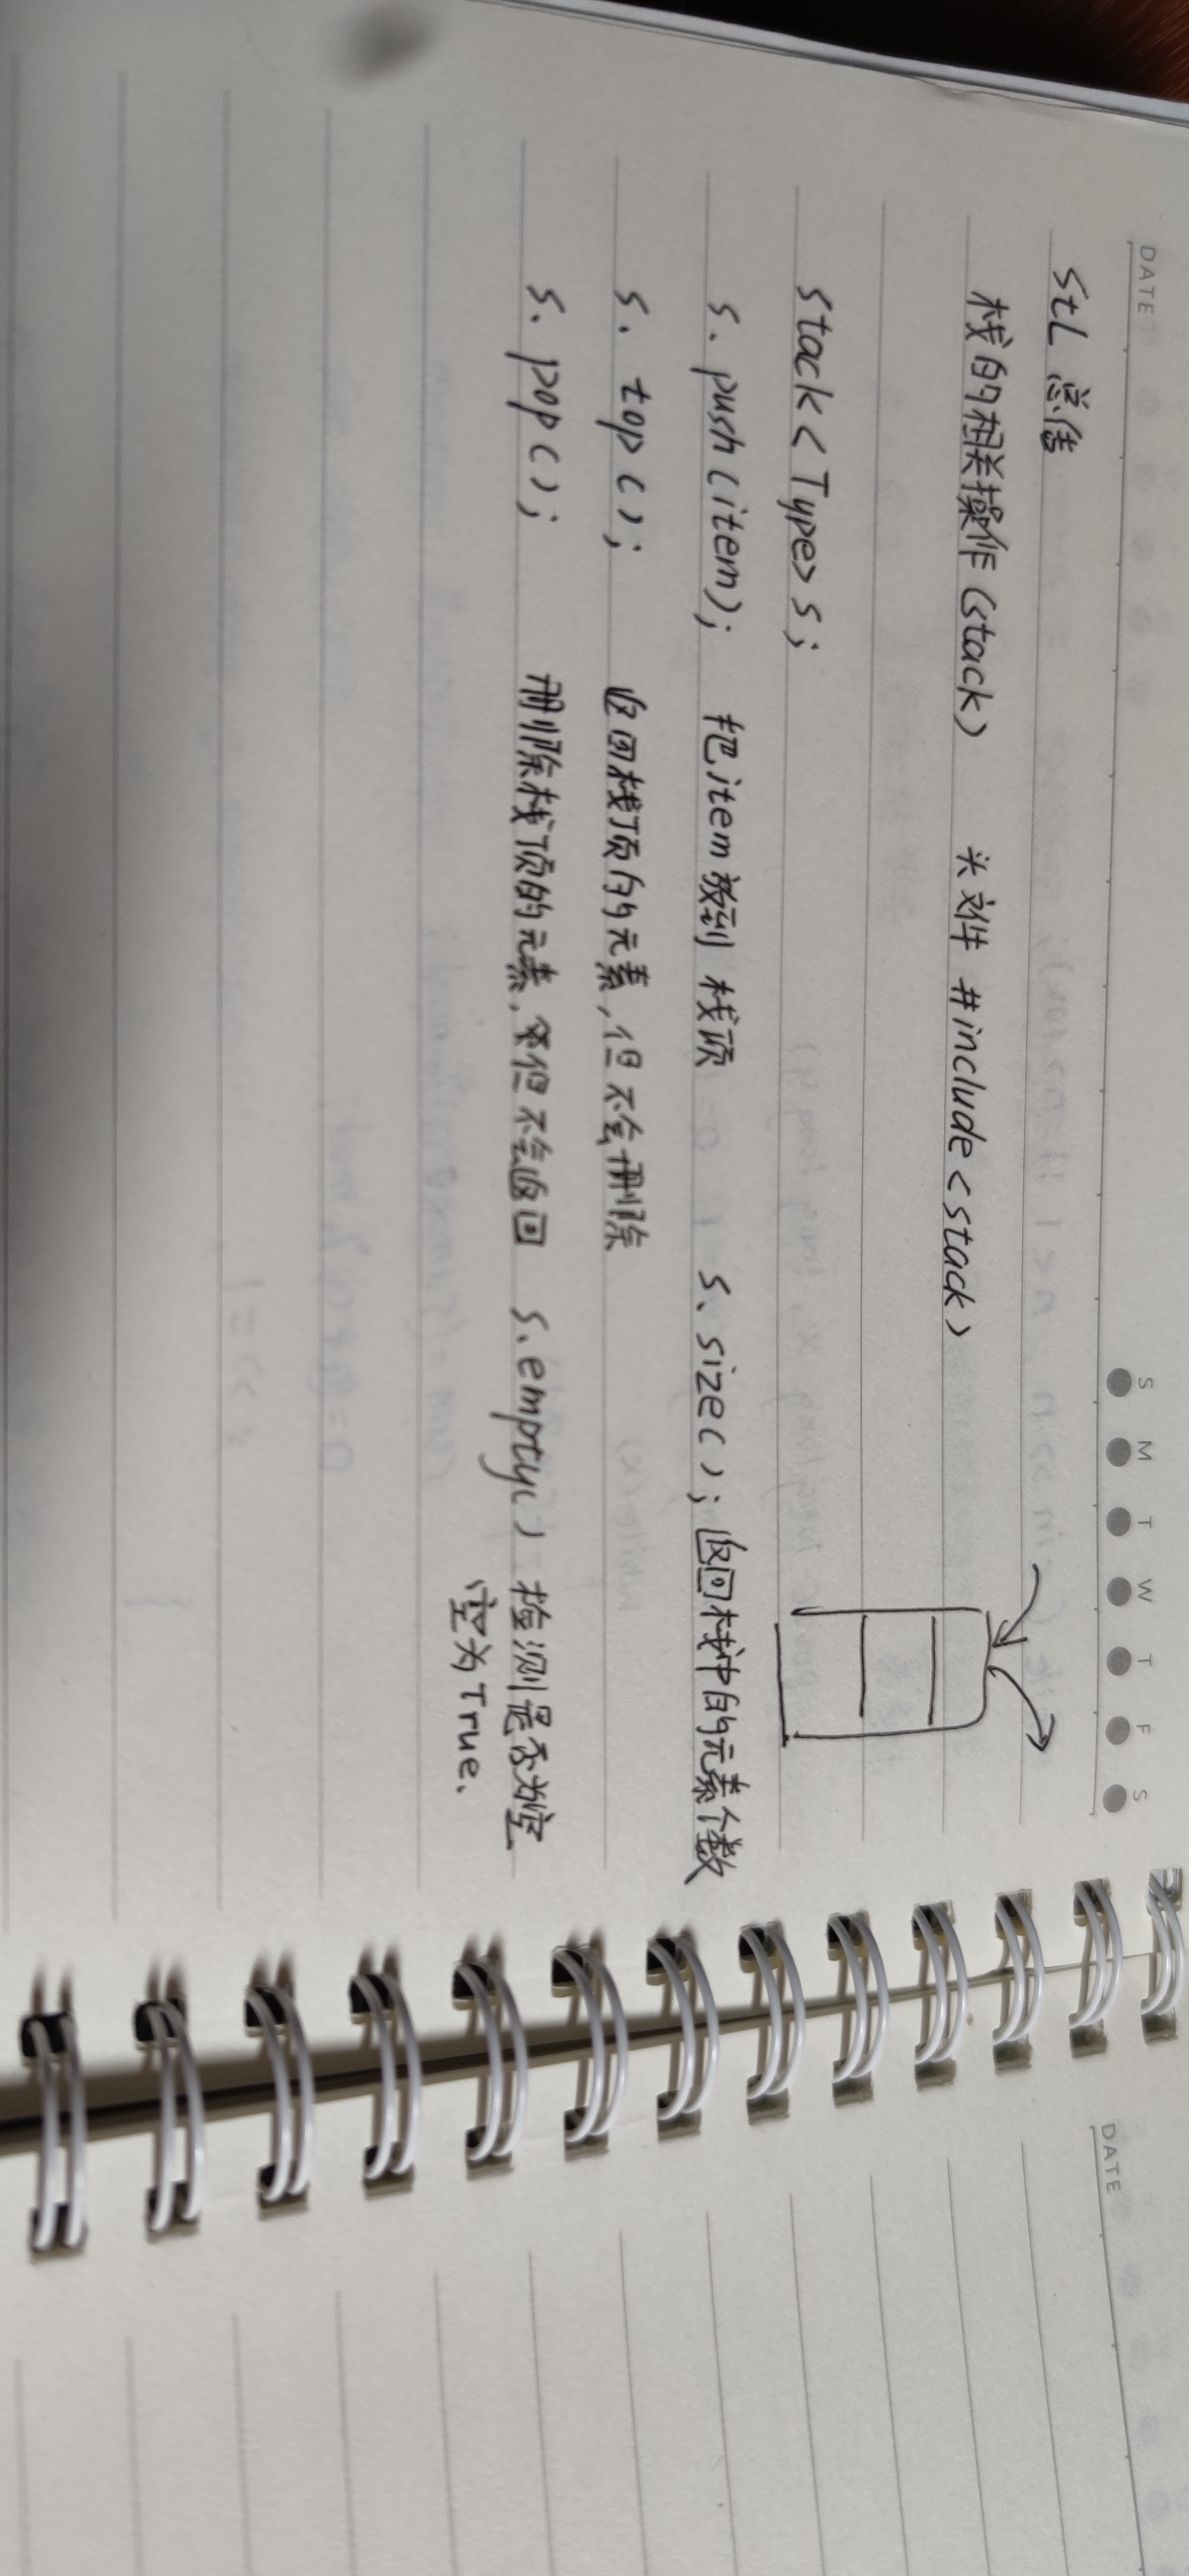 DATE S M T W T F S
StL 总结
栈的相关操作(stack) 头文件 #include<stack>
Stack<Type>s;
s.push(item); 把item放到栈顶 s、size(); 返回栈中的元素个数
s.top(); 返回栈顶的元素,但不会删除
s.pop(); 删除栈顶的元素,但不会返回 s.empty() 检测是否为空
空为True、
DATE